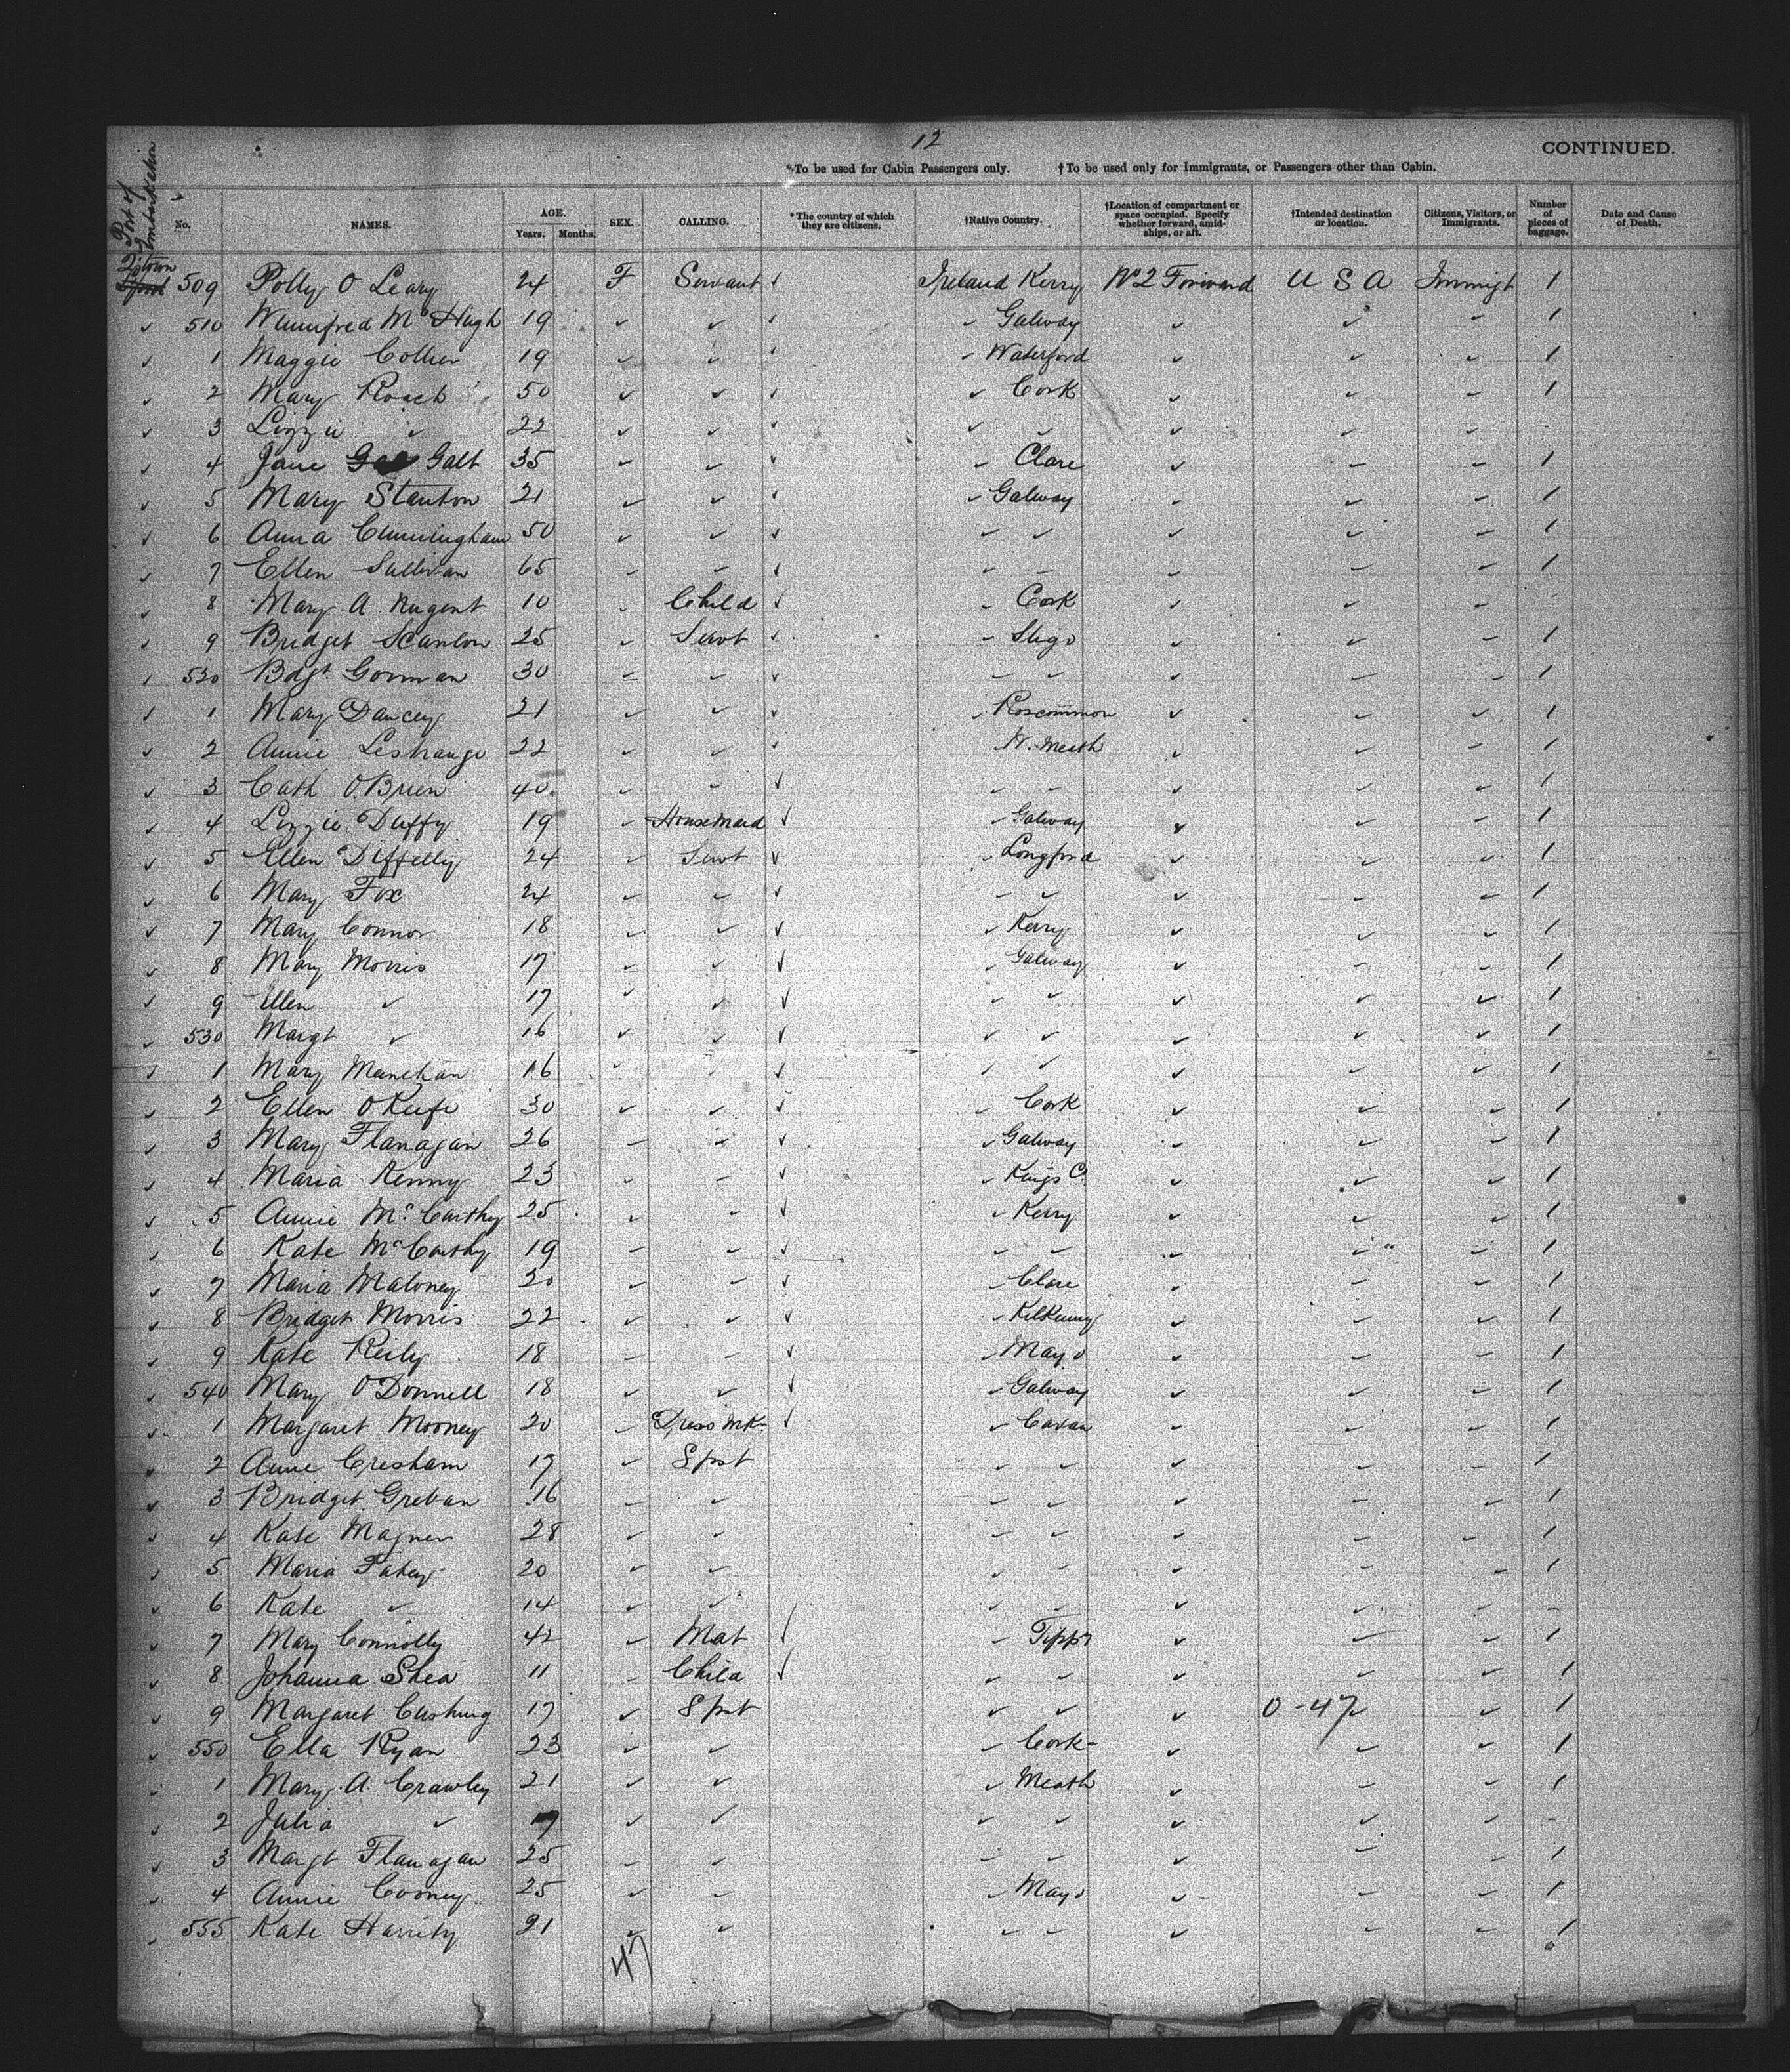 12
CONTINUED.
*To be used for Cabin Passengers only. †To be used only for Immigrants, or Passengers other than Cabin.
Port of Embarkation No. NAMES. AGE. Years. Months. SEX. CALLING. *The country of which they are citizens. †Native Country. †Location of compartment or space occupied. Specify whether forward, amidships, or aft. †Intended destination or location. Citizens, Visitors, or Immigrants. Number of pieces of baggage. Date and Cause of Death.
Qstown 509 Polly O Leary 24 F Servant ✓ Ireland Kerry No 2 Forward U S A Immigt 1
✓ 510 Winnifred Mc Hugh 19 ✓ ✓ ✓ ✓ Galway ✓ ✓ ✓ 1
✓ 1 Maggie Collier 19 ✓ ✓ ✓ ✓ Waterford ✓ ✓ ✓ 1
✓ 2 Mary Roach 50 ✓ ✓ ✓ ✓ Cork ✓ ✓ ✓ 1
✓ 3 Lizzie ✓ 22 ✓ ✓ ✓ ✓ ✓ ✓ ✓ ✓ -
✓ 4 Jane Galt 35 ✓ ✓ ✓ ✓ Clare ✓ ✓ ✓ 1
✓ 5 Mary Stanton 21 ✓ ✓ ✓ ✓ Galway ✓ ✓ ✓ 1
✓ 6 Anna Cunningham 50 ✓ ✓ ✓ ✓ ✓ ✓ ✓ ✓ 1
✓ 7 Ellen Sullivan 65 ✓ ✓ ✓ ✓ ✓ ✓ ✓ ✓ 1
✓ 8 Mary A. Nugent 10 ✓ Child ✓ ✓ Cork ✓ ✓ ✓
✓ 9 Bridget Scanlon 25 ✓ Servt ✓ ✓ Sligo ✓ ✓ ✓ 1
✓ 520 Bdgt Gorman 30 ✓ ✓ ✓ ✓ ✓ ✓ ✓ ✓ 1
✓ 1 Mary Dancey 21 ✓ ✓ ✓ ✓ Roscommon ✓ ✓ ✓ 1
✓ 2 Annie Lestrange 22 ✓ ✓ ✓ W. Meath ✓ ✓ ✓ 1
✓ 3 Cath O'Brien 40 ✓ ✓ ✓ ✓ ✓ ✓ ✓ ✓ 1
✓ 4 Lizzie Duffy 19 ✓ Housemaid ✓ ✓ Galway ✓ ✓ ✓ 1
✓ 5 Ellen Diffelly 24 ✓ Servt ✓ ✓ Longford ✓ ✓ ✓ 1
✓ 6 Mary Fox 24 ✓ ✓ ✓ ✓ ✓ ✓ ✓ ✓ 1
✓ 7 Mary Connor 18 ✓ ✓ ✓ ✓ Kerry ✓ ✓ ✓ 1
✓ 8 Mary Morris 17 ✓ ✓ ✓ ✓ Galway ✓ ✓ ✓ 1
✓ 9 Ellen ✓ 17 ✓ ✓ ✓ ✓ ✓ ✓ ✓ ✓ 1
✓ 530 Margt ✓ 16 ✓ ✓ ✓ ✓ ✓ ✓ ✓ ✓ 1
✓ 1 Mary 16 ✓ ✓ ✓ ✓ ✓ ✓ ✓ ✓ 1
✓ 2 Ellen O Keefe 30 ✓ ✓ ✓ ✓ Cork ✓ ✓ ✓ 1
✓ 3 Mary Flanagan 26 ✓ ✓ ✓ ✓ Galway ✓ ✓ ✓ 1
✓ 4 Maria Kenny 23 ✓ ✓ ✓ ✓ Kings Co. ✓ ✓ ✓ 1
✓ 5 Annie Mc Carthy 25 ✓ ✓ ✓ ✓ Kerry ✓ ✓ ✓ 1
✓ 6 Kate McCarthy 19 ✓ ✓ ✓ ✓ ✓ ✓ ✓ ✓ 1
✓ 7 Maria Maloney 20 ✓ ✓ ✓ ✓ Clare ✓ ✓ ✓ 1
✓ 8 Bridget Morris 22 ✓ ✓ ✓ ✓ Kilkenny ✓ ✓ ✓ 1
✓ 9 Kate Reily 18 ✓ ✓ ✓ ✓ Mayo ✓ ✓ ✓ 1
✓ 540 Mary O'Donnell 18 ✓ ✓ ✓ ✓ Galway ✓ ✓ ✓ 1
✓ 1 Margaret Mooney 20 ✓ Dress mkr ✓ ✓ Cavan ✓ ✓ ✓ 1
✓ 2 Anne Gresham 17 ✓ Spst ✓ ✓ ✓ ✓ ✓ 1
✓ 3 Bridget 16 ✓ ✓ ✓ ✓ ✓ ✓ ✓ 1
✓ 4 Kate Magner 28 ✓ ✓ ✓ ✓ ✓ ✓ ✓ 1
✓ 5 Maria Fahey 20 ✓ ✓ ✓ ✓ ✓ ✓ ✓ 1
✓ 6 Kate ✓ 14 ✓ ✓ ✓ ✓ ✓ ✓ ✓ -
✓ 7 Mary Connolly 42 ✓ Mat ✓ ✓ Tippy ✓ ✓ ✓ 1
✓ 8 Johanna Shea 11 ✓ Child ✓ ✓ ✓ ✓ ✓ ✓ 1
✓ 9 Margaret 17 ✓ Spst ✓ ✓ ✓ 0-47 ✓ ✓ 1
✓ 550 Ella Ryan 23 ✓ ✓ ✓ Cork ✓ ✓ ✓ 1
✓ 1 Mary A. Crawley 21 ✓ ✓ ✓ Meath ✓ ✓ ✓ 1
✓ 2 Julia ✓ ✓ ✓ ✓ ✓ ✓ ✓ ✓ -
✓ 3 Margt Flanagan 25 ✓ ✓ ✓ ✓ ✓ ✓ ✓ 1
✓ 4 Annie Cooney 25 ✓ ✓ ✓ Mayo ✓ ✓ ✓ 1
✓ 555 Kate Harrity 21 ✓ ✓ ✓ ✓ ✓ ✓ ✓ 1
47